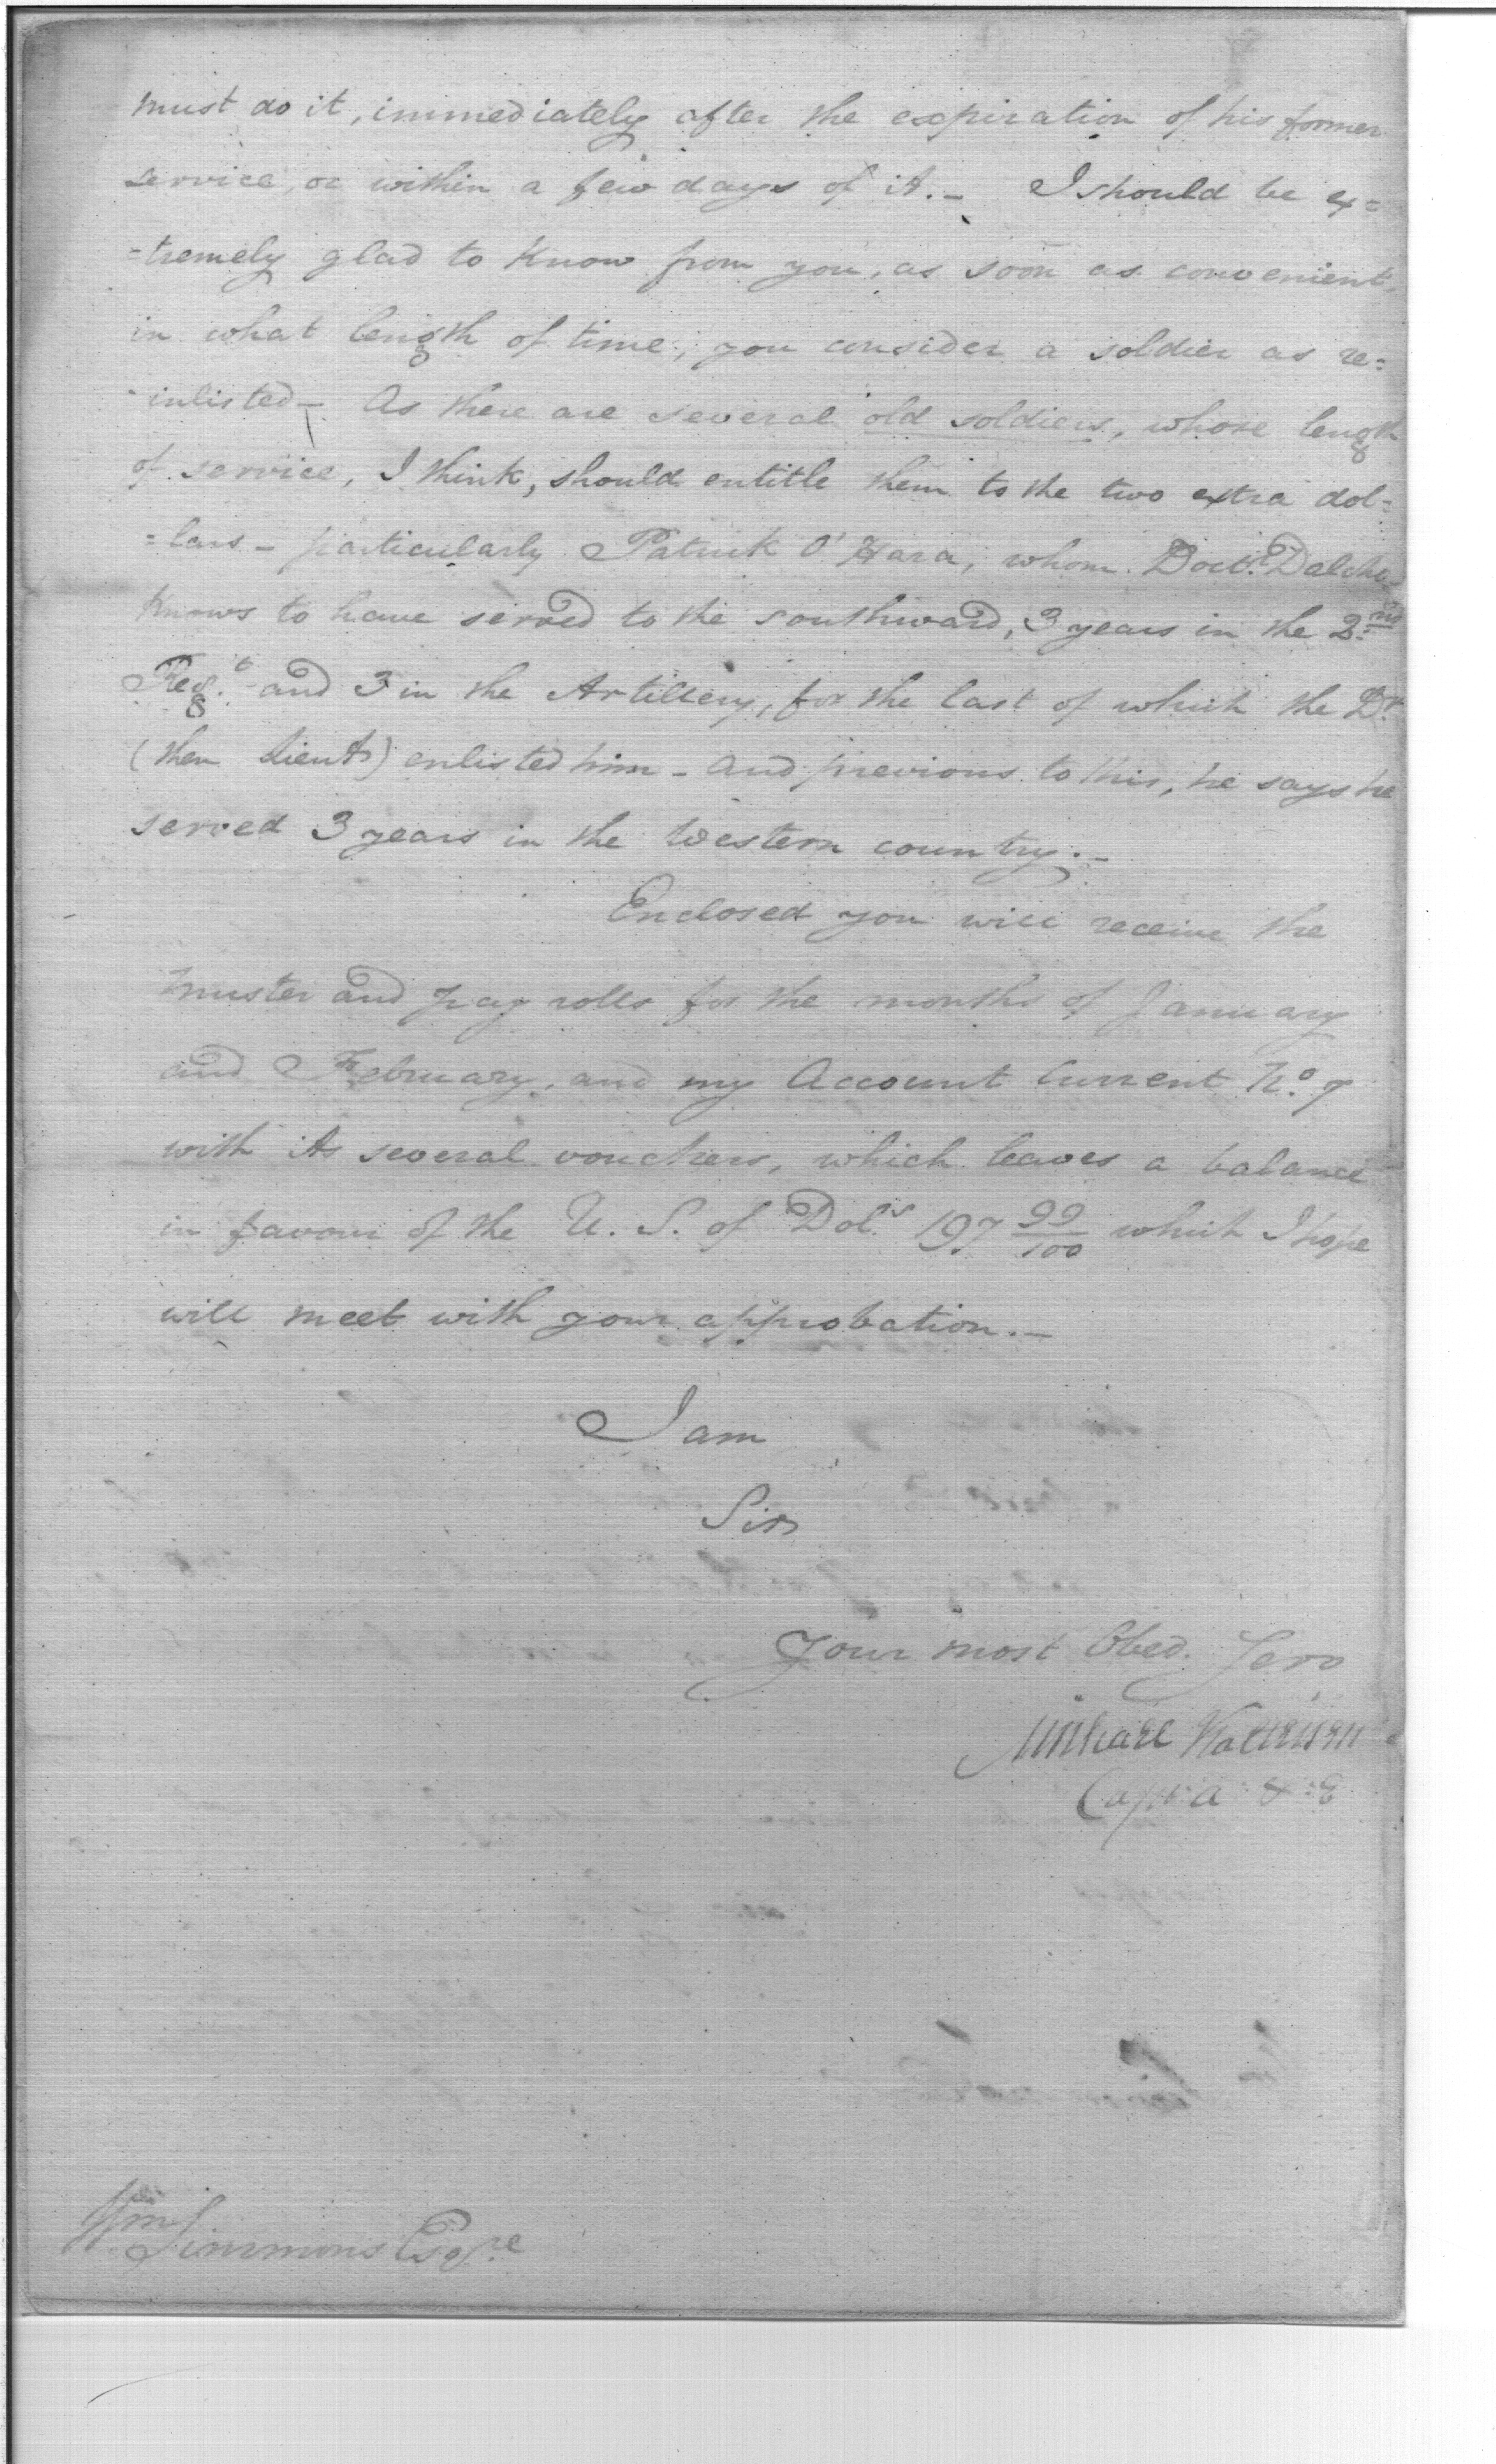 must do it, immediately after the expiration of his former
service, or within a few days of it._ I should be ex=
-tremely glad to know from you, as soon as convenient,
in what length of time, you consider a soldier as re=
-inlisted_ As there are several old soldiers, whose length
of service, I think, should entitle them to the two extra dol=
=lars_ particularly Patrick O'Hara, whom Doctr. Dalcho
knows to have served to the southward, 3 years in the 2nd
Regt. and 3 in the Artillery, for the last of which the Dr
(then Lieut) enlisted him_ and previous to this, he says he
served 3 years in the Western country._
Enclosed you will receive the
muster and pay rolls for the months of January
and February, and my Account Current No. 7
with its several vouchers, which leaves a balance
in favour of the U. S. of Dols 197 99/100 which I hope
will meet with your approbation._
I am
Sir
Your most Obed. Serv
Michael Kalteisen
Capt. A & E
Wm Simmons Esqre